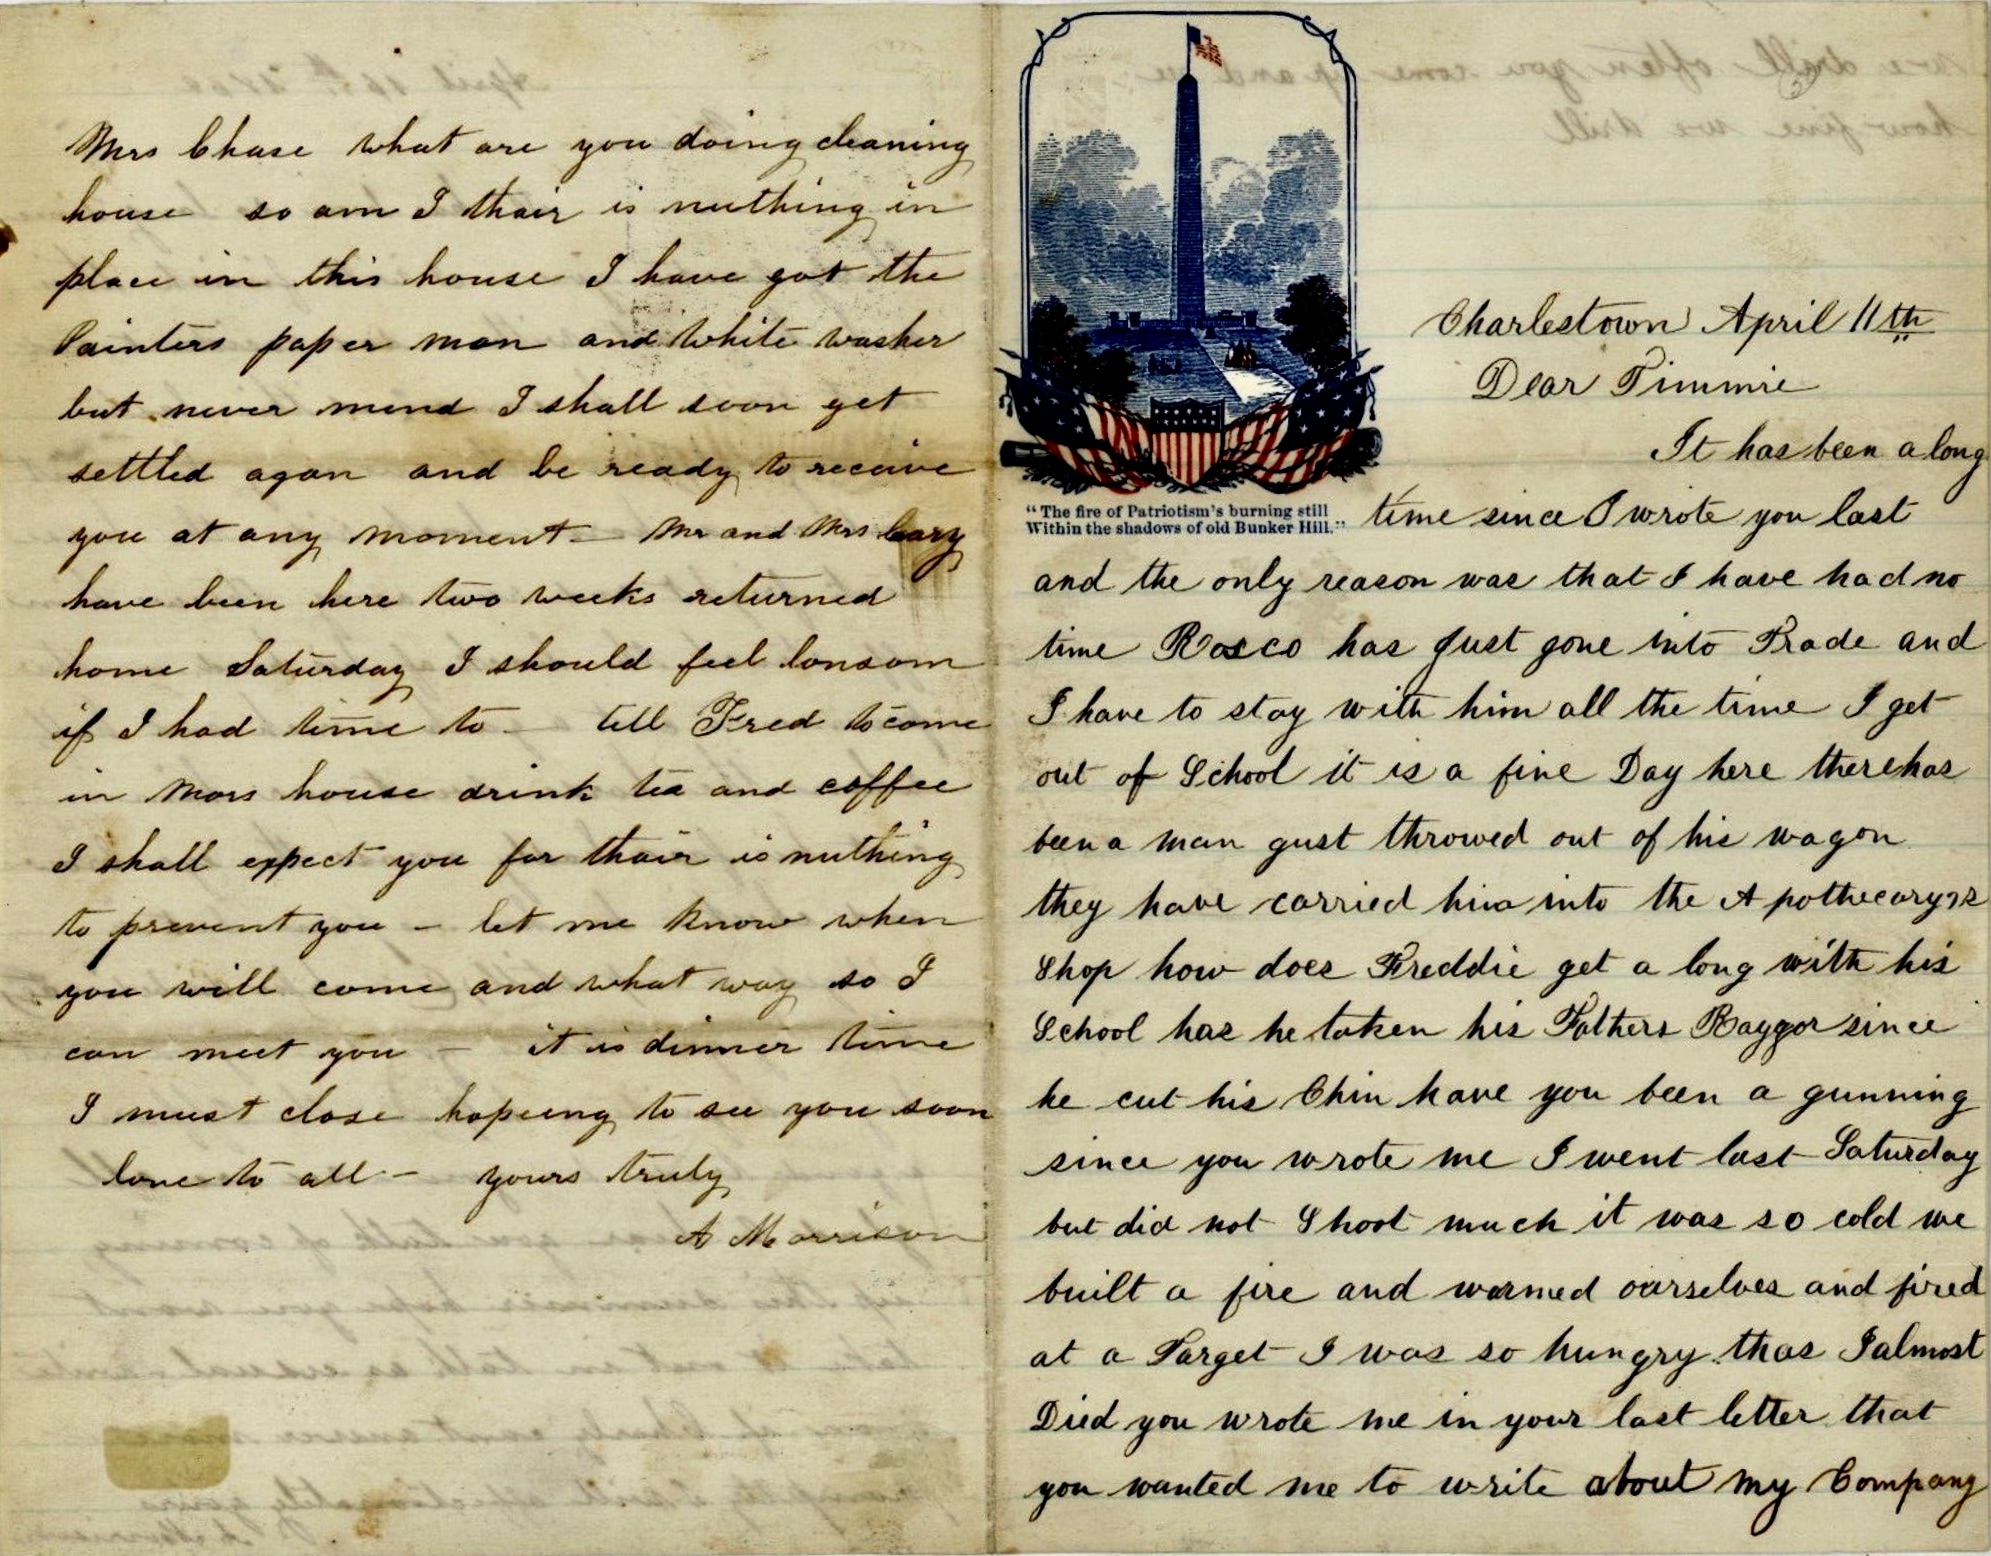 Mrs Chase what are you doing cleaning
house so am I thair is nuthing in
place in this house I have got the
Painters paper man and white washer
but never mind I shall soon get
settled agan and be ready to receive
you at any moment – Mr and Mrs Cary
have been here two weeks returned
home Saturday I should feel lonsom
if I had time to – tell Fred to come
in Mars house drink tea and coffee
I shall expect you for thair is nuthing
to prevent you – let me know when
you will come and what way so I
can meet you – it is dinner time
I must close hopeing to see you soon
love to all – yours truly
A Morrison
"The fire of Patriotism's burning still
Within the shadows of old Bunker Hill."
Charlestown April 11th
Dear Timmie
It has been a long
time since I wrote you last
and the only reason was that I have had no
time Rosco has Just gone into Trade and
I have to stay with him all the time I get
out of School it is a fine Day here there has
been a man gust throwed out of his wagon
they have carried him into the Apothecary,s
Shop how does Freddie get a long with his
School has he taken his Fathers Raygor since
he cut his Chin have you been a gunning
since you wrote me I went last Saturday
but did not Shoot much it was so cold we
built a fire and warmed ourselves and fired
at a Target I was so hungry thas I almost
Died you wrote me in your last letter that
you wanted me to write about my Company